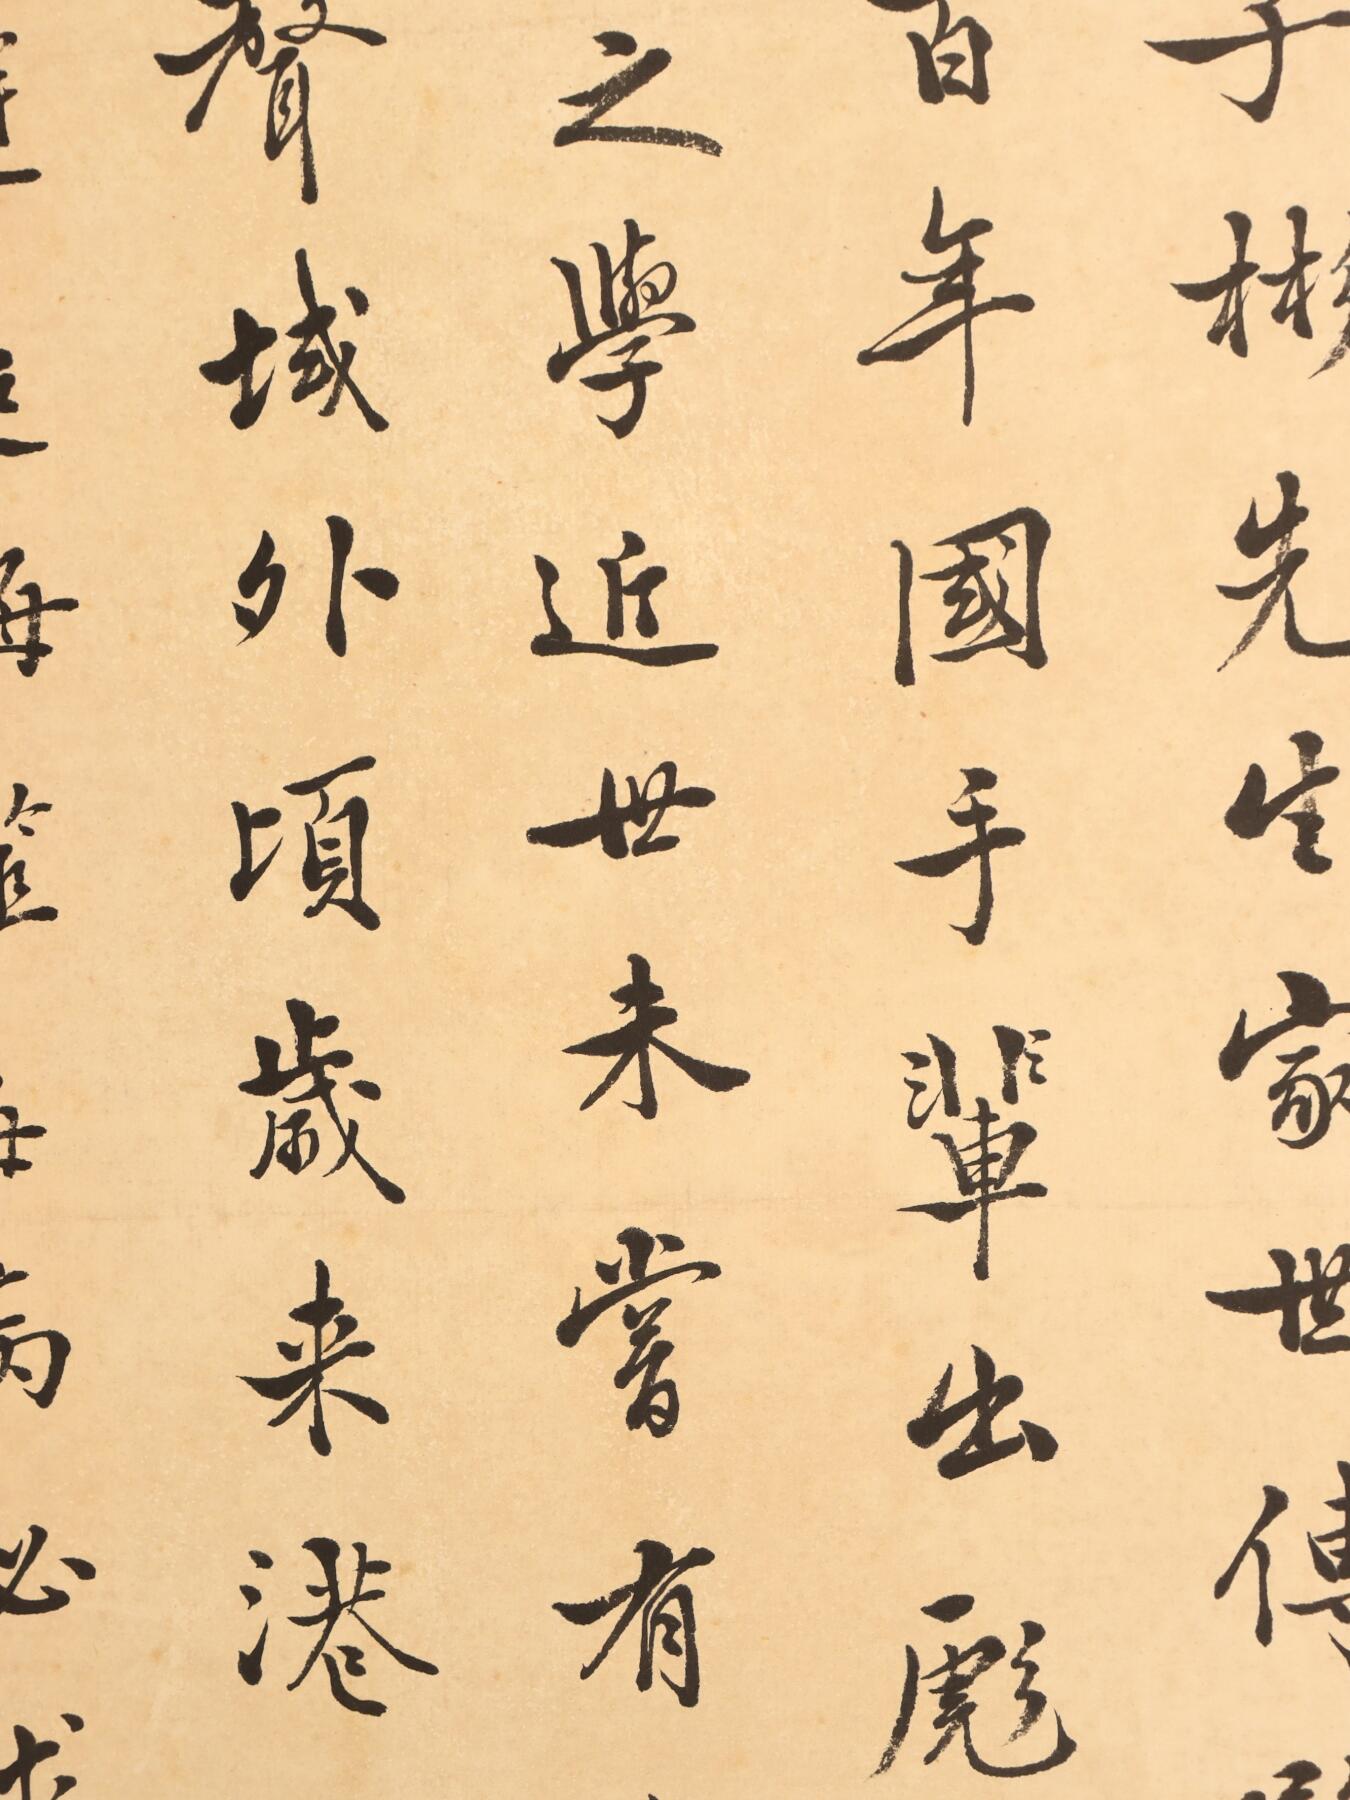 子彬先生家世傳
百年國手輩出彪
之學近世未嘗有
聲域外頃歲来港
每病必求